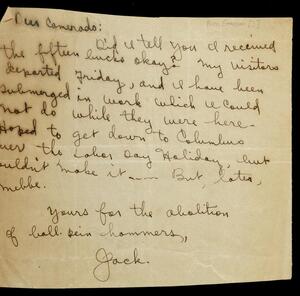 Dear Comerado:
Did I tell you I received
the fifteen bucks okay? My visitors
departed Friday, and I have been
submerged in work which I could
not do while they were here.
Hoped to get down to Columbus
over the Labor Day Holiday, but
couldn't make it —— But, later,
mebbe.
Yours for the abolition
of ball-pein hammers,
Jack.